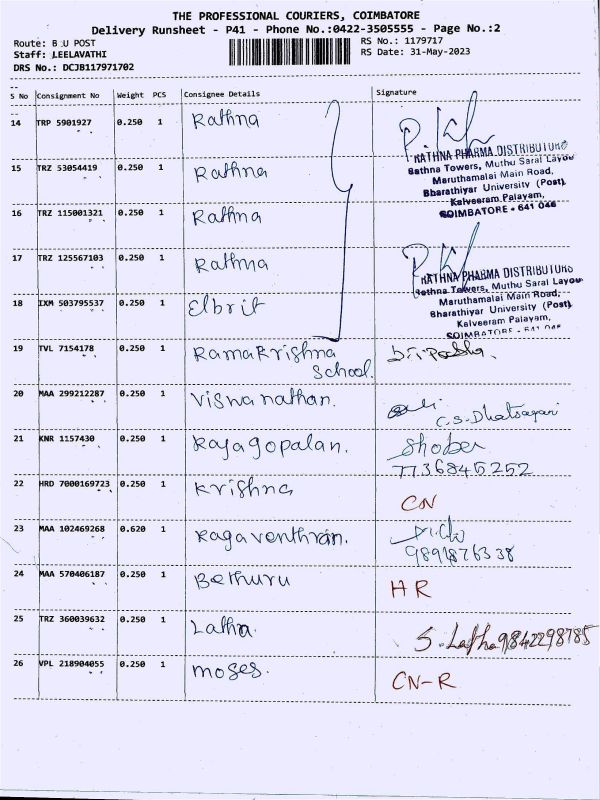 THE PROFESSIONAL COURIERS, COIMBATORE
Delivery Runsheet - P41 - Phone No.:0422-3505555 - Page No.:2
Route: B U POST
RS No.: 1179717
Staff: LEELAVATHI
RS Date: 31-May-2023
DRS No.: DCJB117971702
S No Consignment No Weight PCS Consignee Details Signature
14 TRP 5901927 0.250 1 Rathna
RATHNA PHARMA DISTRIBUTORS
Rathna Towers, Muthu Saral Layou
Maruthamalai Main Road,
Bharathiyar University (Post),
Kalveeram Palayam,
COIMBATORE - 641 046
15 TRZ 53054419 0.250 1 Rathna
16 TRZ 115001321 0.250 1 Rathna
17 TRZ 125567103 0.250 1 Rathna
RATHNA PHARMA DISTRIBUTORS
Rathna Towers, Muthu Saral Layou
Maruthamalai Main Road,
Bharathiyar University (Post),
Kalveeram Palayam,
COIMBATORE - 641 046
18 IXM 503795537 0.250 1 Elbrit
19 TVL 7154178 0.250 1 Ramakrishna
School.
20 MAA 299212287 0.250 1 Viswanathan.
21 KNR 1157430 0.250 1 Rajagopalan. Shober
7736845252
22 HRD 7000169723 0.250 1 Krishna CN
23 MAA 102469268 0.620 1 Ragaventhran.
9891876338
24 MAA 570406187 0.250 1 Bethuru HR
25 TRZ 360039632 0.250 1 Latha. S. Latha 9842298785
26 VPL 218904055 0.250 1 moses. CN-R